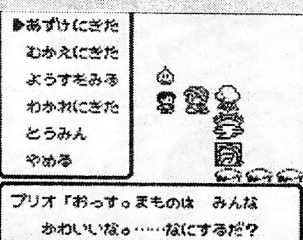 ▶あずけにきた
むかえにきた
ようすをみる
わかれにきた
とうみん
やめる
プリオ「おっす。まものは　みんな
かわいいな。……なにするだ？